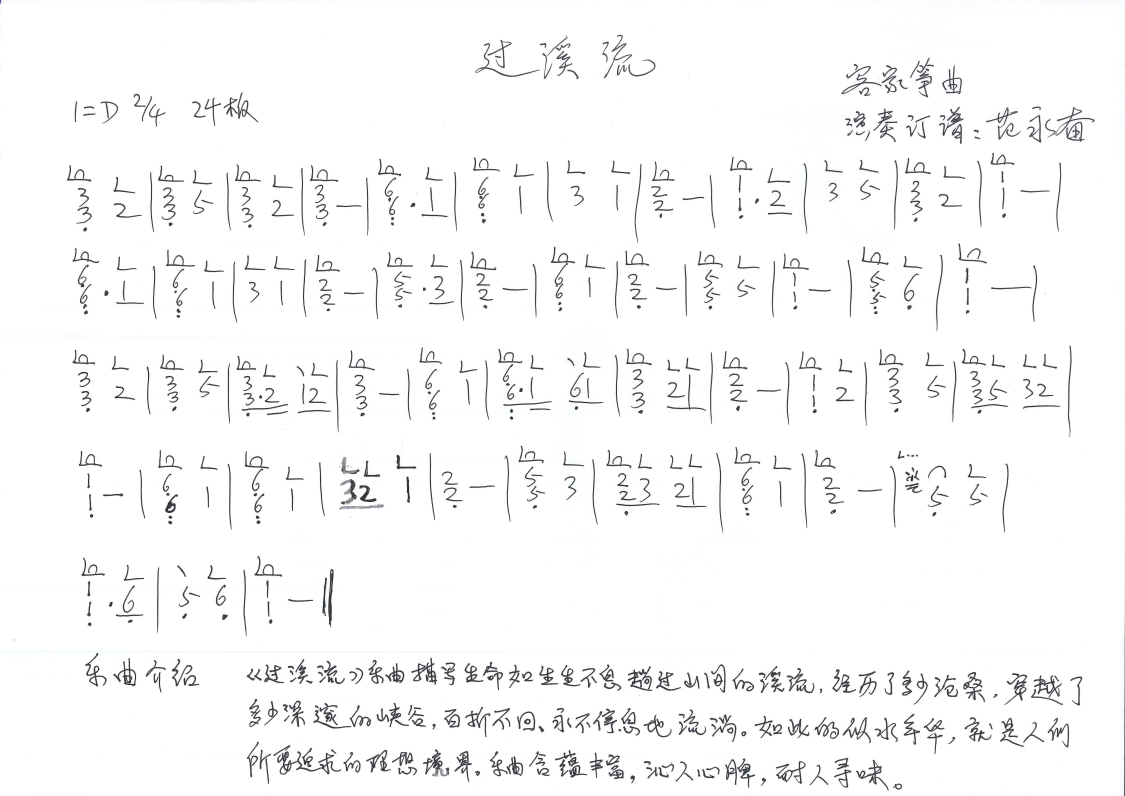 过溪流
客家筝曲
1=D 2/4 24板
演奏订谱：范永奋
3 3 2 | 3 3 5 | 3 3 2 | 3 3 — | 6 6 · 1 | 6 6 1 | 3 1 | 2 2 — | 1 1 · 2 | 3 5 | 3 3 2 | 1 1 — |
6 6 · 1 | 6 6 1 | 3 1 | 2 2 — | 5 5 · 3 | 2 2 — | 6 6 1 | 2 2 — | 5 5 5 | 1 1 — | 5 5 6 | 1 1 — |
3 3 2 | 3 3 5 | 3 3 · 2 12 | 3 3 — | 6 6 1 | 6 6 · 1 61 | 3 3 21 | 2 2 — | 1 1 2 | 3 3 5 | 3 35 32 |
1 1 — | 6 6 1 | 6 6 1 | 32 1 | 2 2 — | 5 5 3 | 2 23 21 | 6 6 1 | 2 2 — | 5 5 |
1 1 · 6 | 5 6 | 1 1 — ‖
乐曲介绍 《过溪流》乐曲描写生命如生生不息趟过山间的溪流，经历了多少沧桑，穿越了
多少深邃的峡谷，百折不回、永不停息地流淌。如此的似水年华，就是人们
所要追求的理想境界。乐曲含蕴丰富，沁人心脾，耐人寻味。